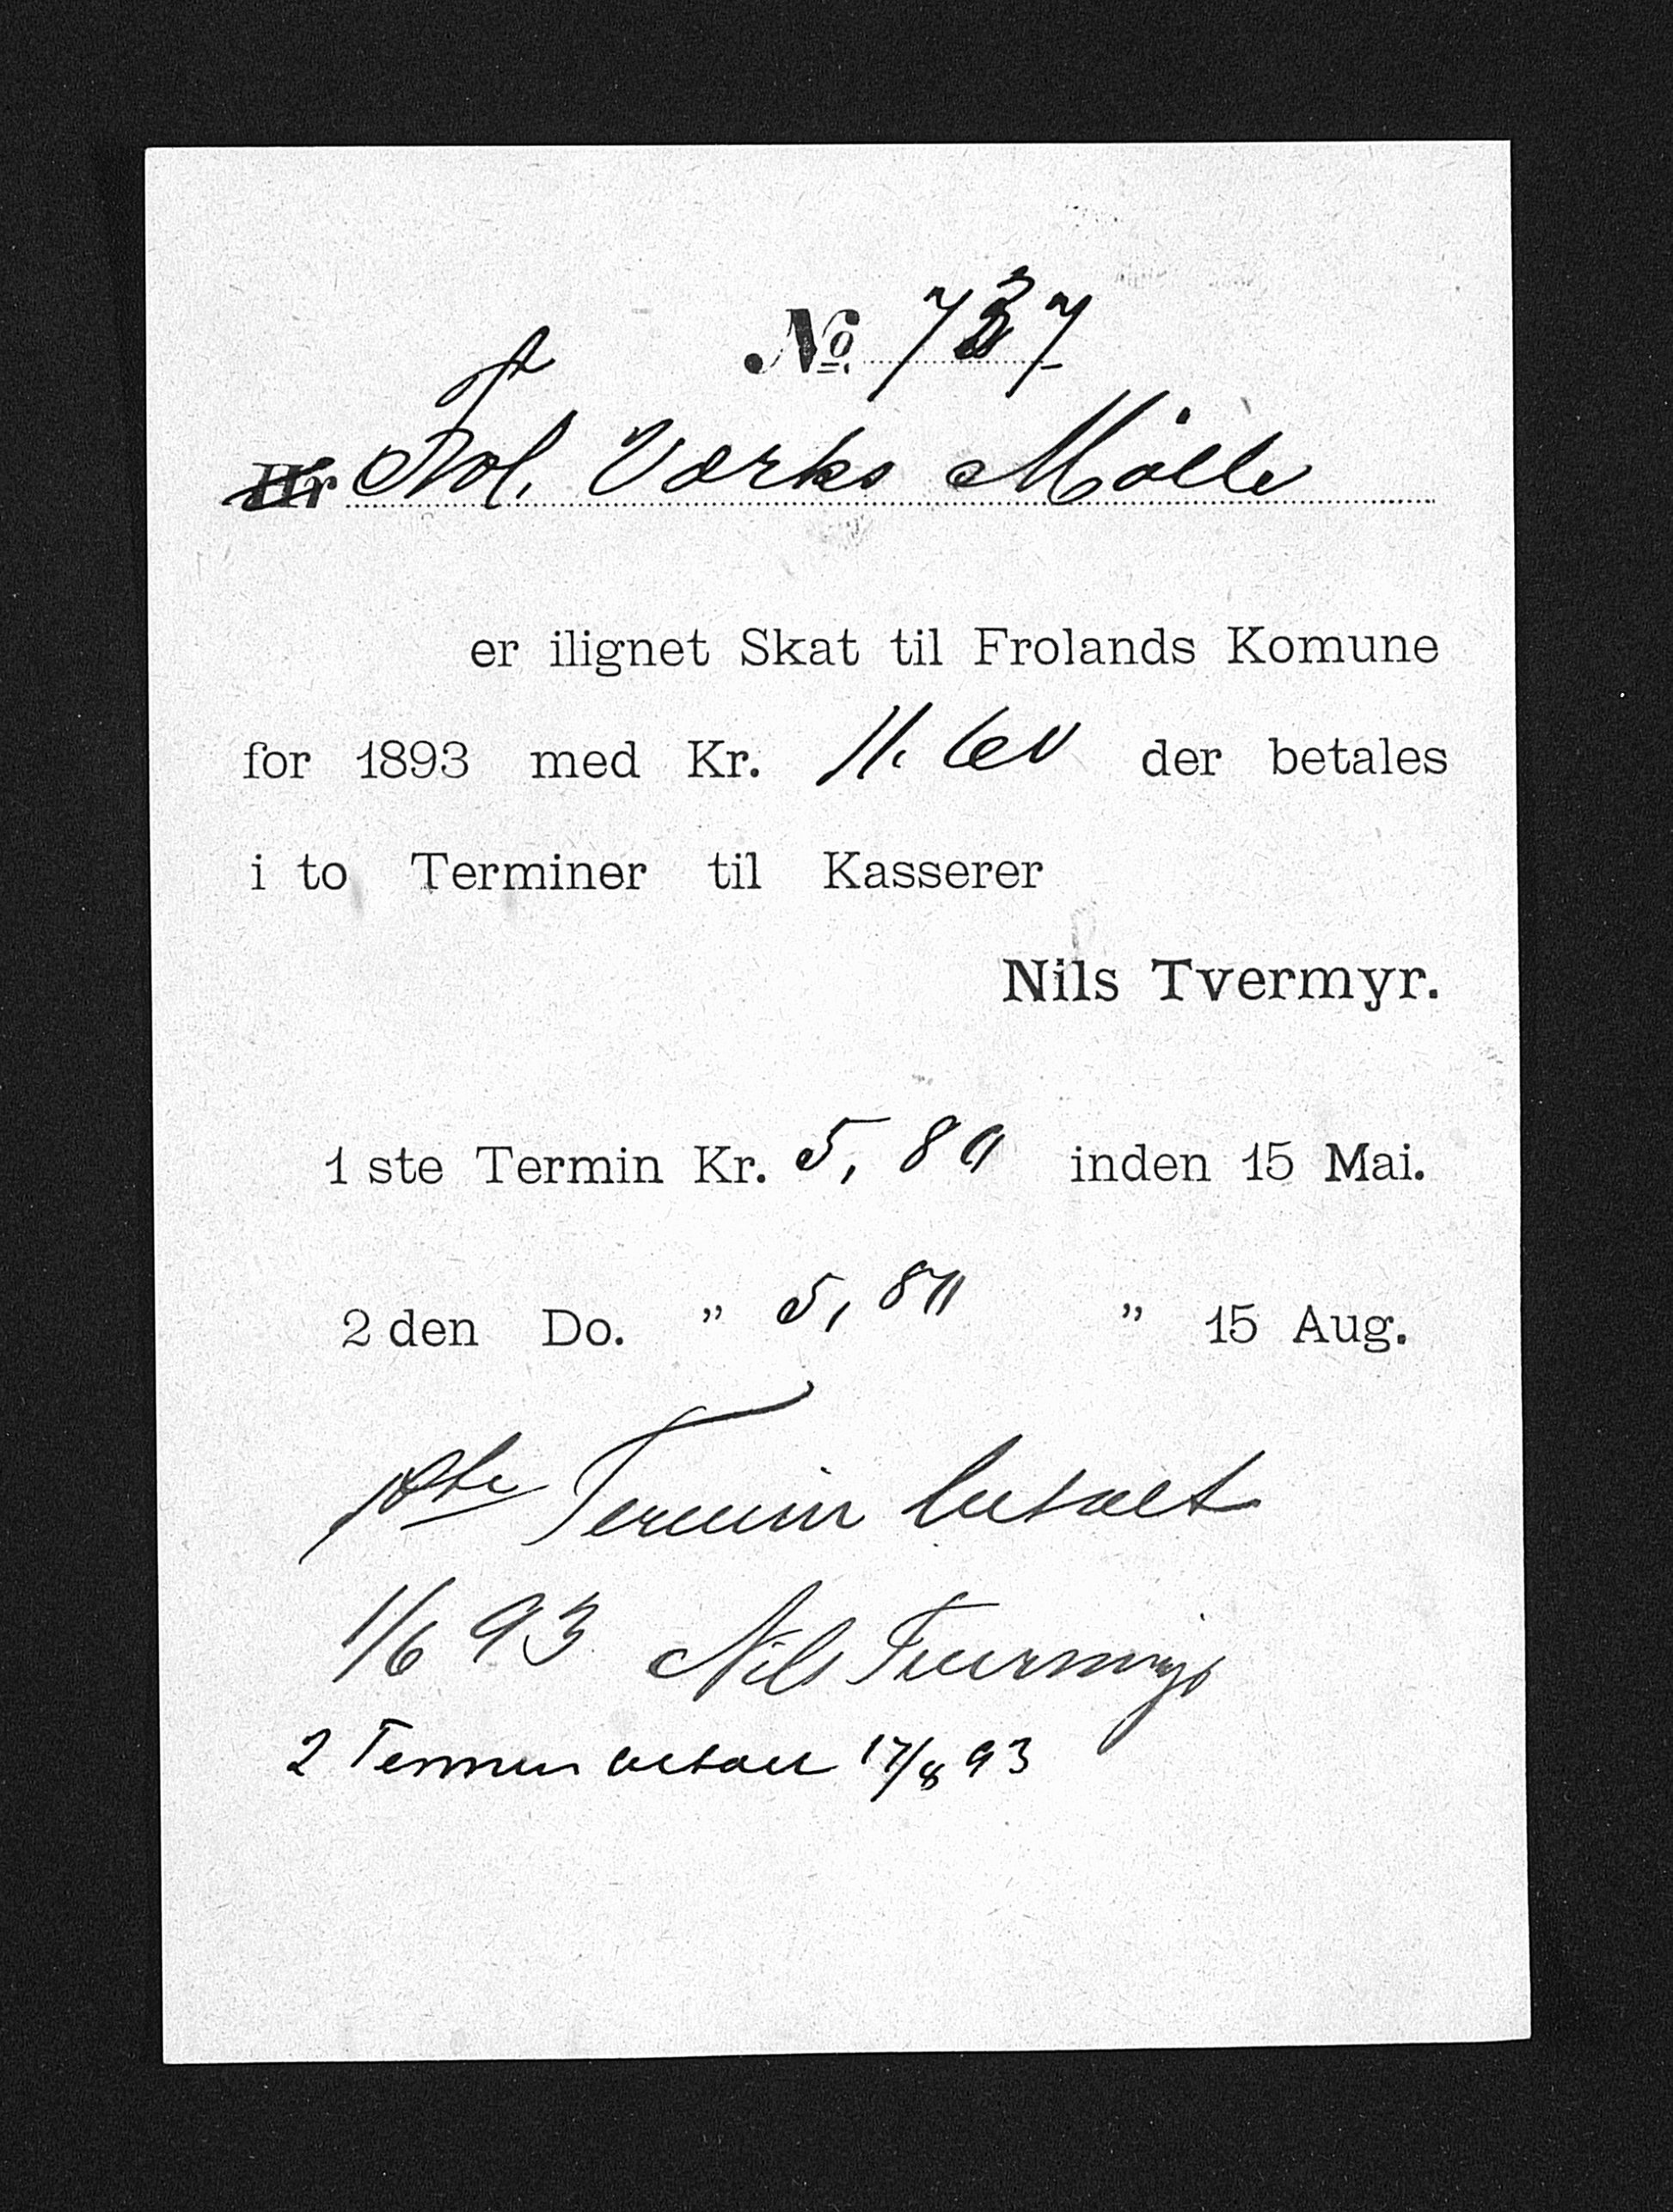 No. 737
Hr Frol. Værks Mølle
er ilignet Skat til Frolands Komune
for 1893 med Kr. 11.60 der betales
i to Terminer til Kasserer
Nils Tvermyr.
1 ste Termin Kr. 5,80 inden 15 Mai.
2 den Do. " 5,80 " 15 Aug.
1ste Termin betalt
1/6 93 Nils Tvermyr
2 Termin betalt 17/8 93